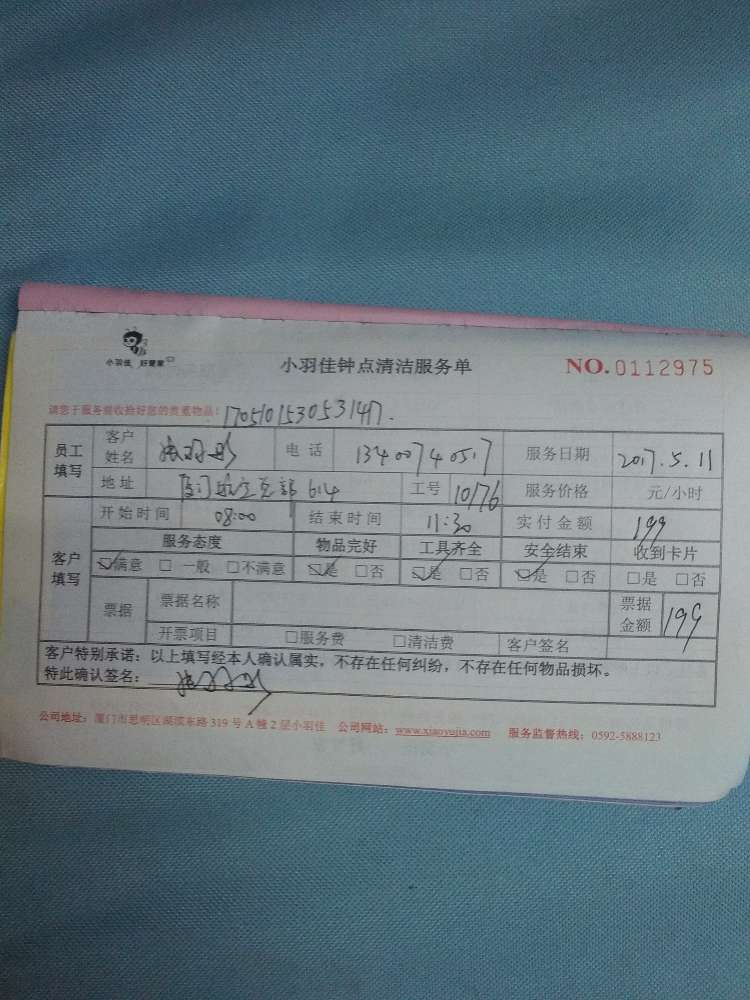 小羽佳 好管家
小羽佳钟点清洁服务单
NO.0112975
请您于服务前收拾好您的贵重物品!
员工填写 客户姓名 电话 13400740517 服务日期 2017.5.11
地址 614 工号 10176 服务价格 元/小时
客户填写 开始时间 08:00 结束时间 11:30 实付金额 199
服务态度 物品完好 工具齐全 安全结束 收到卡片
☑满意 □一般 □不满意 ☑是 □否 ☑是 □否 ☑是 □否 □是 □否
票据 票据名称 票据金额 199
开票项目 □服务费 □清洁费 客户签名
客户特别承诺:以上填写经本人确认属实,不存在任何纠纷,不存在任何物品损坏。
特此确认签名:
公司地址:厦门市思明区湖滨东路319号A幢2层小羽佳 公司网站:www.xiaoyujia.com 服务监督热线:0592-5888123